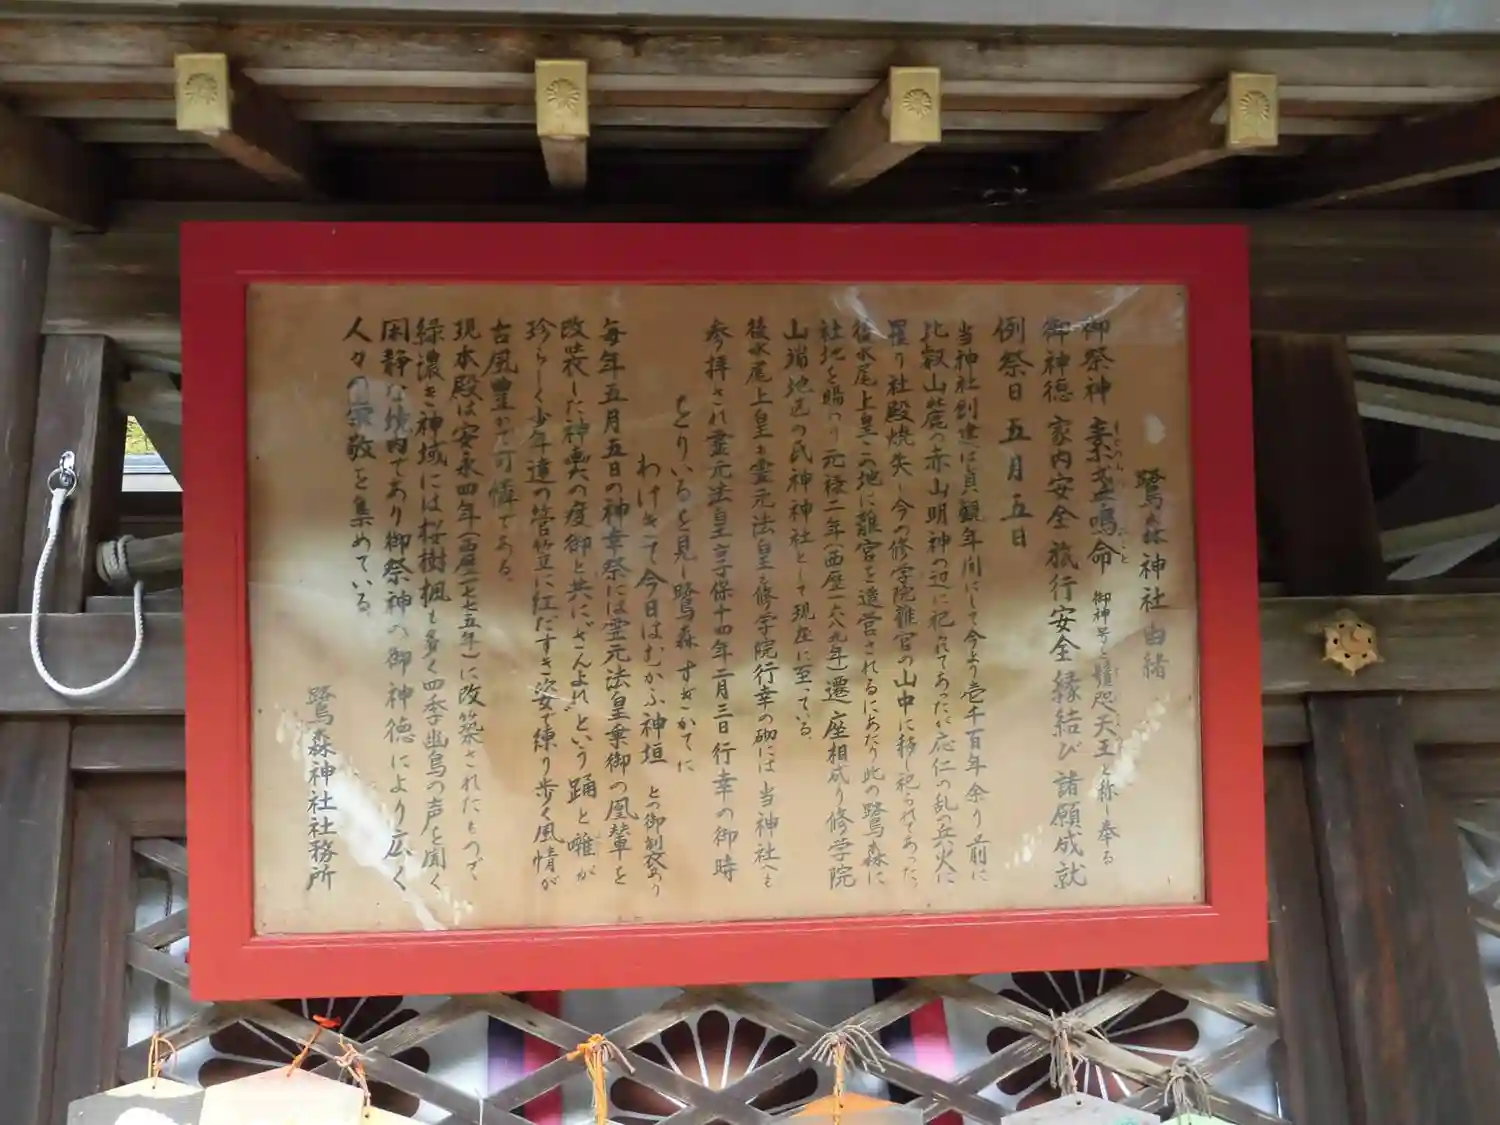 鷺森神社由緒
御祭神 素盞嗚命 御神号を鬘咫天王と称し奉る
御神徳 家内安全 旅行安全 縁結び 諸願成就
例祭日 五月五日
当神社創建は貞観年間にして今より壱千百年余り前に
比叡山麓の赤山明神の辺に祀られてあったが応仁の乱の兵火に
罹り社殿焼失し今の修学院離宮の山中に移し祀られてあった。
後水尾上皇この地に離宮を造営されるにあたり此の鷺森に
社地を賜わり元禄二年(西歴一六八九年)遷座相成り修学院
山端地区の氏神神社として現在に至っている。
後水尾上皇も霊元法皇も修学院行幸の砌には当神社へも
参拝され霊元法皇享保十四年二月三日行幸の御時
をりいるを見し鷺森すぎかてに
わけきて今日はむかふ神垣 との御制歌あり
毎年五月五日の神幸祭には霊元法皇乗御の鳳輦を
改装した神輿の渡御と共に“さんよれ”という踊と囃が
珍らしく少年達の菅笠に紅だすき姿で練り歩く風情が
古風豊かで可憐である。
現本殿は安永四年(西歴一七七五年)に改築されたもので、
緑濃き神域には桜樹楓も多く四季幽鳥の声を聞く
閑静な境内であり御祭神の御神徳により広く
人々の崇敬を集めている。
鷺森神社社務所